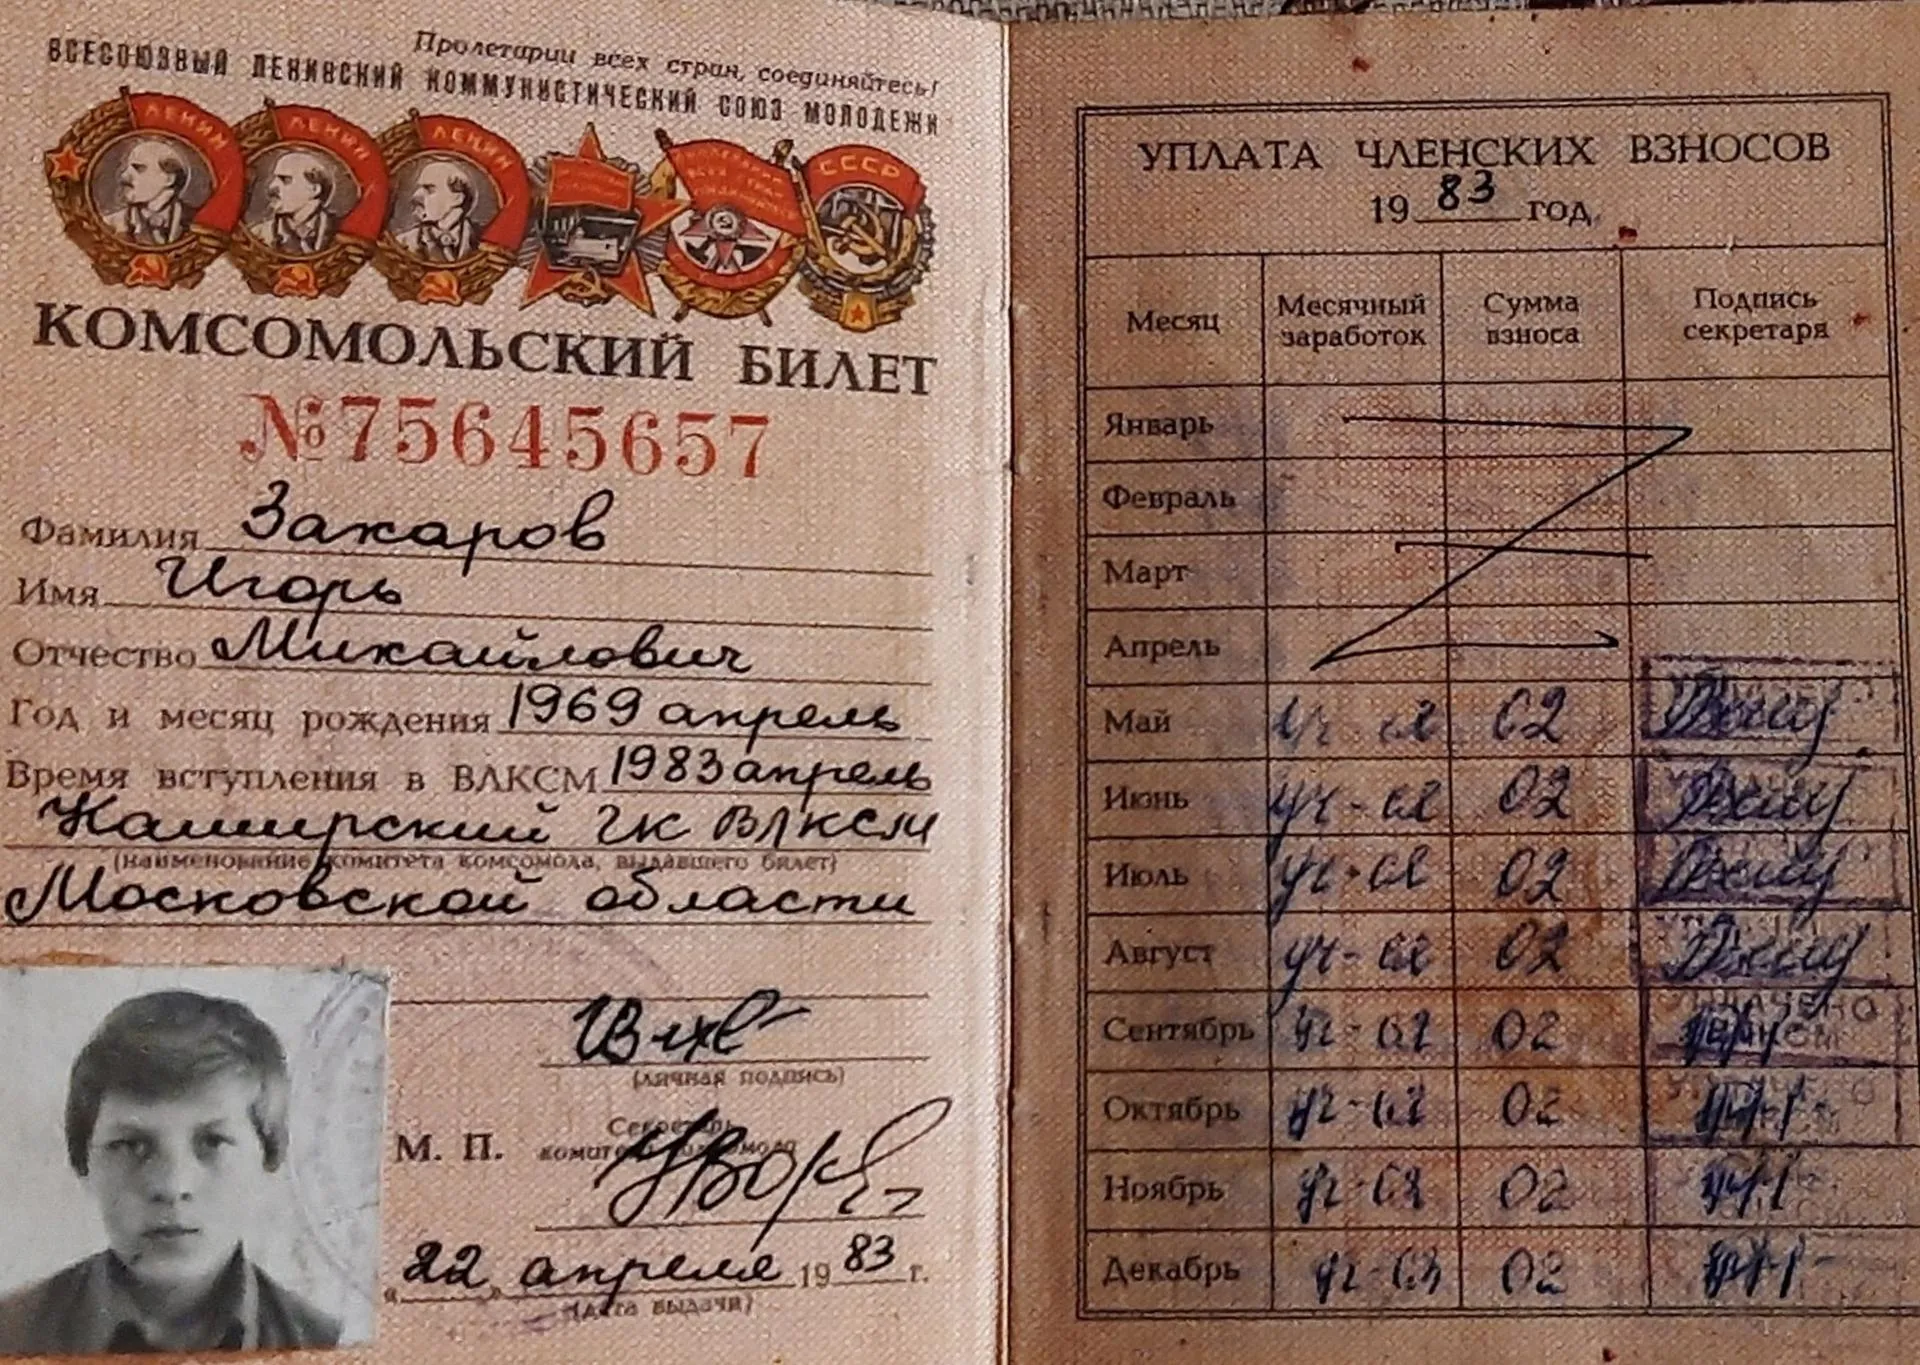 Пролетарии всех стран, соединяйтесь!
ВСЕСОЮЗНЫЙ ЛЕНИНСКИЙ КОММУНИСТИЧЕСКИЙ СОЮЗ МОЛОДЕЖИ
ЛЕНИН ЛЕНИН ЛЕНИН СССР
КОМСОМОЛЬСКИЙ БИЛЕТ
№75645657
Фамилия Захаров
Имя Игорь
Отчество Михайлович
Год и месяц рождения 1969 апрель
Время вступления в ВЛКСМ 1983 апрель
Каширский ГК ВЛКСМ
(наименование комитета комсомола, выдавшего билет)
Московской области
(личная подпись)
Секретарь
М. П. комитета комсомола
"22" апреля 1983 г.
(дата выдачи)
УПЛАТА ЧЛЕНСКИХ ВЗНОСОВ
1983 год
Месяц Месячный заработок Сумма взноса Подпись секретаря
Январь
Февраль
Март
Апрель
Май уч-ся 02
Июнь уч-ся 02
Июль уч-ся 02
Август уч-ся 02
Сентябрь уч-ся 02 УПЛАЧЕНО
Октябрь уч-ся 02
Ноябрь уч-ся 02
Декабрь уч-ся 02